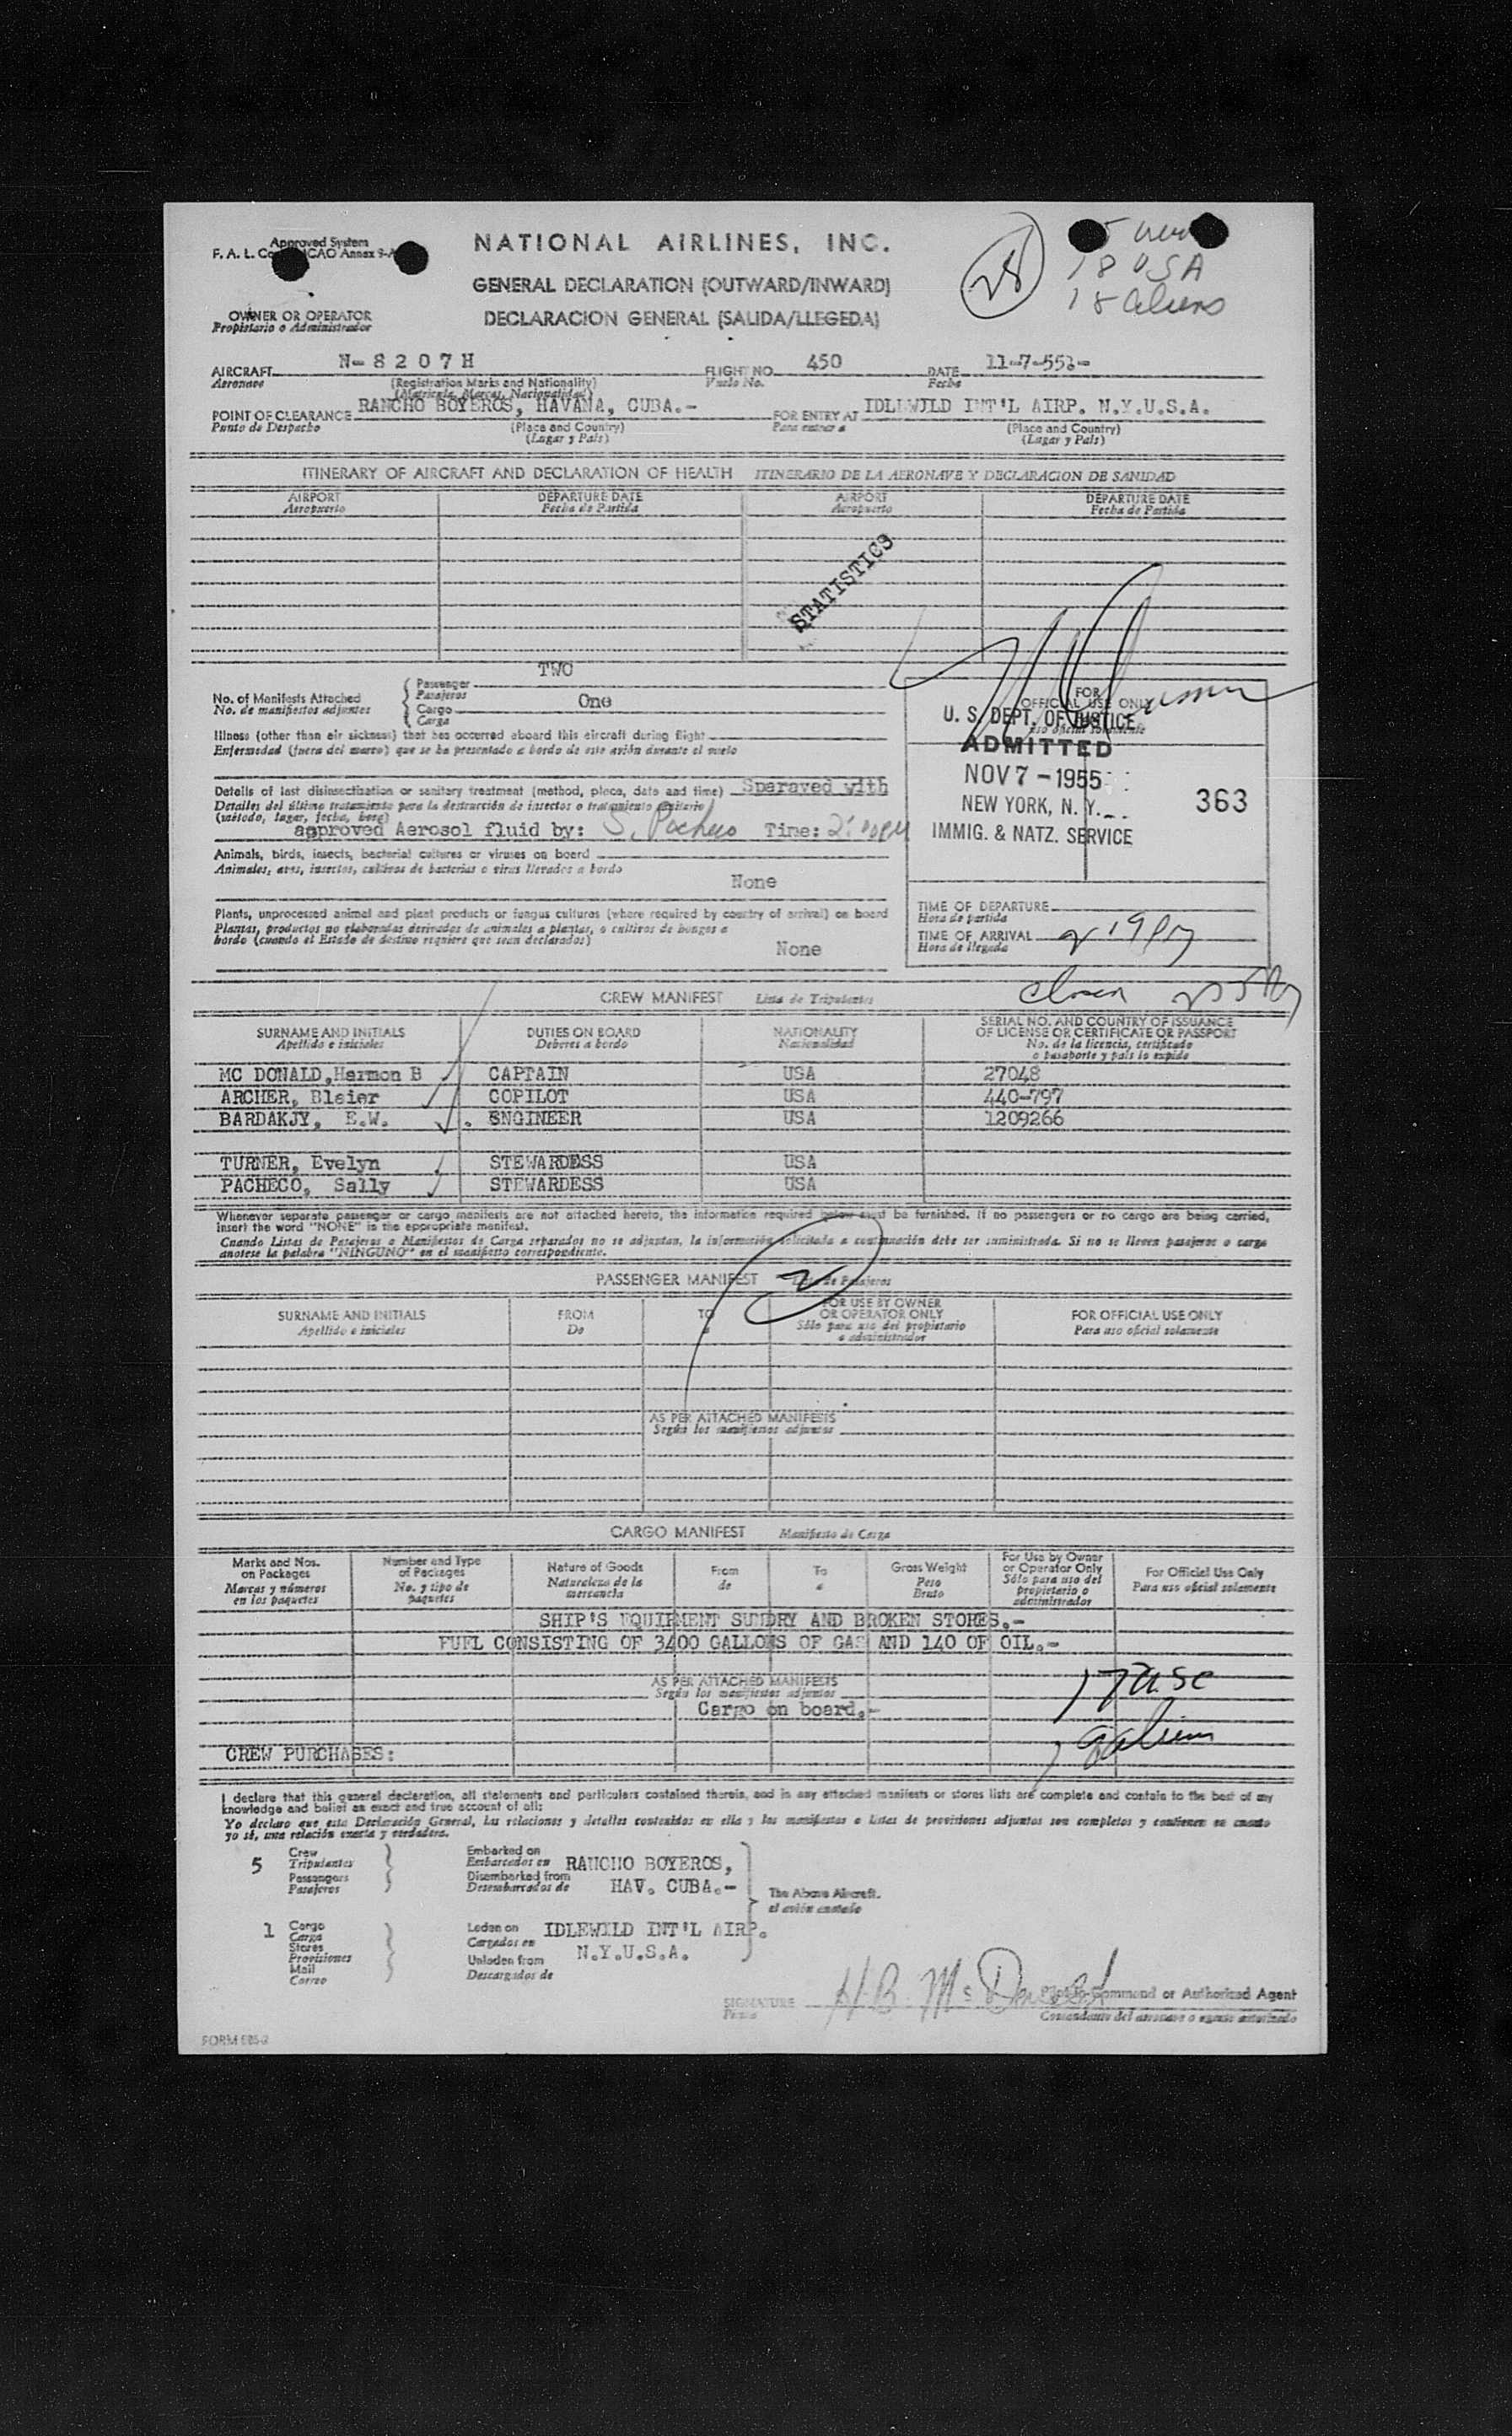 Approved System
NATIONAL AIRLINES, INC.
18 USA
18 aliens
28
GENERAL DECLARATION (OUTWARD/INWARD)
OWNER OR OPERATOR
Propietario o Administrador
DECLARACION GENERAL (SALIDA/LLEGEDA)
AIRCRAFT N-8207H FLIGHT NO. 450 DATE 11-7-55
Aeronave (Registration Marks and Nationality) Vuelo No. Fecha
(Matricula, Marcas, Nacionalidad)
POINT OF CLEARANCE RANCHO BOYEROS, HAVANA, CUBA.- FOR ENTRY AT IDLEWILD INT'L AIRP. N.Y.U.S.A.
Punto de Despacho (Place and Country) Para entrar a (Place and Country)
(Lugar y País) (Lugar y País)
ITINERARY OF AIRCRAFT AND DECLARATION OF HEALTH ITINERARIO DE LA AERONAVE Y DECLARACION DE SANIDAD
AIRPORT DEPARTURE DATE AIRPORT DEPARTURE DATE
Aeropuerto Fecha de Partida Aeropuerto Fecha de Partida
STATISTICS
TWO
No. of Manifests Attached Passenger
No. de manifiestos adjuntos Pasajeros
Cargo One
Carga
FOR
OFFICIAL USE ONLY
U. S. DEPT. OF JUSTICE
ADMITTED
NOV 7 - 1955
NEW YORK, N. Y.
363
IMMIG. & NATZ. SERVICE
Illness (other than air sickness) that has occurred aboard this aircraft during flight
Enfermedad (fuera del mareo) que se ha presentado a bordo de este avión durante el vuelo
Details of last disinsectization or sanitary treatment (method, place, date and time) Sparaved with
Detalles del último tratamiento para la destrucción de insectos o tratamiento sanitario
(método, lugar, fecha, hora)
approved Aerosol fluid by: S. Pacheco Time:
Animals, birds, insects, bacterial cultures or viruses on board
Animales, aves, insectos, cultivos de bacterias o virus llevados a bordo
None
Plants, unprocessed animal and plant products or fungus cultures (where required by country of arrival) on board
Plantas, productos no elaborados derivados de animales a plantas, o cultivos de hongos a
bordo (cuando el Estado de destino requiere que sean declarados)
None
TIME OF DEPARTURE
Hora de partida
TIME OF ARRIVAL
Hora de llegada
CREW MANIFEST Lista de Tripulantes
SURNAME AND INITIALS DUTIES ON BOARD NATIONALITY SERIAL NO. AND COUNTRY OF ISSUANCE
Apellido e iniciales Deberes a bordo Nacionalidad OF LICENSE OR CERTIFICATE OR PASSPORT
No. de la licencia, certificado
o pasaporte y país lo expide
MC DONALD, Harmon B CAPTAIN USA 27048
ARCHER, Blaier COPILOT USA 440-797
BARDAKJY, E.W. ENGINEER USA 1209266
TURNER, Evelyn STEWARDESS USA
PACHECO, Sally STEWARDESS USA
Whenever separate passenger or cargo manifests are not attached hereto, the information required below must be furnished. If no passengers or no cargo are being carried,
insert the word "NONE" in the appropriate manifest.
Cuando Listas de Pasajeros o Manifiestos de Carga separados no se adjuntan, la información solicitada a continuación debe ser suministrada. Si no se lleven pasajeros o carga
anotese la palabra "NINGUNO" en el manifiesto correspondiente.
PASSENGER MANIFEST Lista de Pasajeros
2
SURNAME AND INITIALS FROM TO FOR USE BY OWNER FOR OFFICIAL USE ONLY
Apellido e iniciales De a OR OPERATOR ONLY Para uso oficial solamente
Sólo para uso del propietario
o administrador
AS PER ATTACHED MANIFESTS
Según los manifiestos adjuntos
CARGO MANIFEST Manifiesto de Carga
Marks and Nos. on Packages Number and Type of Packages Nature of Goods From To Gross Weight For Use by Owner or Operator Only For Official Use Only
Marcas y números en los paquetes No. y tipo de paquetes Naturaleza de la mercancía de a Peso Bruto Sólo para uso del propietario o administrador Para uso oficial solamente
SHIP'S EQUIPMENT SUNDRY AND BROKEN STORES.-
FUEL CONSISTING OF 3400 GALLONS OF GAS AND 140 OF OIL.-
AS PER ATTACHED MANIFESTS
Según los manifiestos adjuntos
Cargo on board.-
CREW PURCHASES:
I declare that this general declaration, all statements and particulars contained therein, and in any attached manifests or stores lists are complete and contain to the best of my
knowledge and belief an exact and true account of all:
Yo declaro que esta Declaración General, las relaciones y detalles contenidos en ella y los manifiestos o listas de provisiones adjuntos son completos y contienen en cuanto
yo sé, una relación exacta y verdadera.
5 Crew Embarked on
Tripulantes Embarcados en RANCHO BOYEROS,
Passengers Disembarked from HAV. CUBA.-
Pasajeros Desembarcados de
The Above Aircraft.
1 Cargo Laden on IDLEWILD INT'L AIRP.
Carga Cargados en N.Y.U.S.A.
Stores Unladen from
Provisiones Descargados de
Mail
Correo
SIGNATURE H.B. McDonald Pilot in Command or Authorized Agent
Firma Comandante del aeronave o agente autorizado